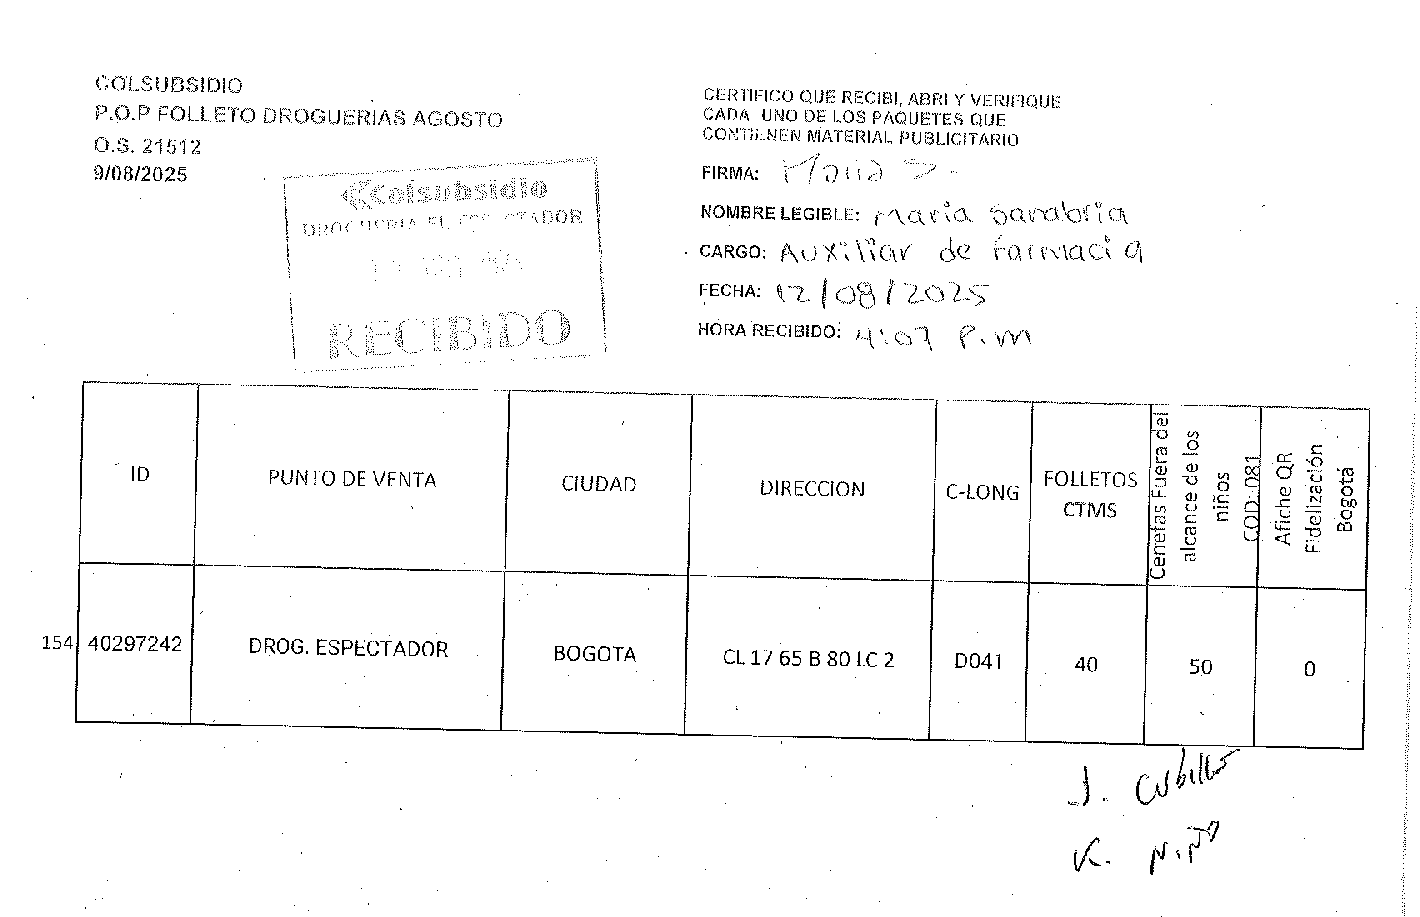 COLSUBSIDIO
P.O.P FOLLETO DROGUERIAS AGOSTO
O.S. 21512
9/08/2025
Colsubsidio
DROGUERIA EL ESPECTADOR
RECIBIDO
CERTIFICO QUE RECIBI, ABRI Y VERIFIQUE
CADA UNO DE LOS PAQUETES QUE
CONTIENEN MATERIAL PUBLICITARIO
FIRMA: Maria S.
NOMBRE LEGIBLE: maria Sanabria
CARGO: Auxiliar de farmacia
FECHA: 12/08/2025
HORA RECIBIDO: 4:07 P.m
ID
PUNTO DE VENTA
CIUDAD
DIRECCION
C-LONG
FOLLETOS
CTMS
Cenefas Fuera del
alcance de los
niños
COD: 081
Afiche QR
Fidelización
Bogotá
154 40297242 DROG. ESPECTADOR BOGOTA CL 17 65 B 80 LC 2 D041 40 50 0
J. Cubillos
K. Niño